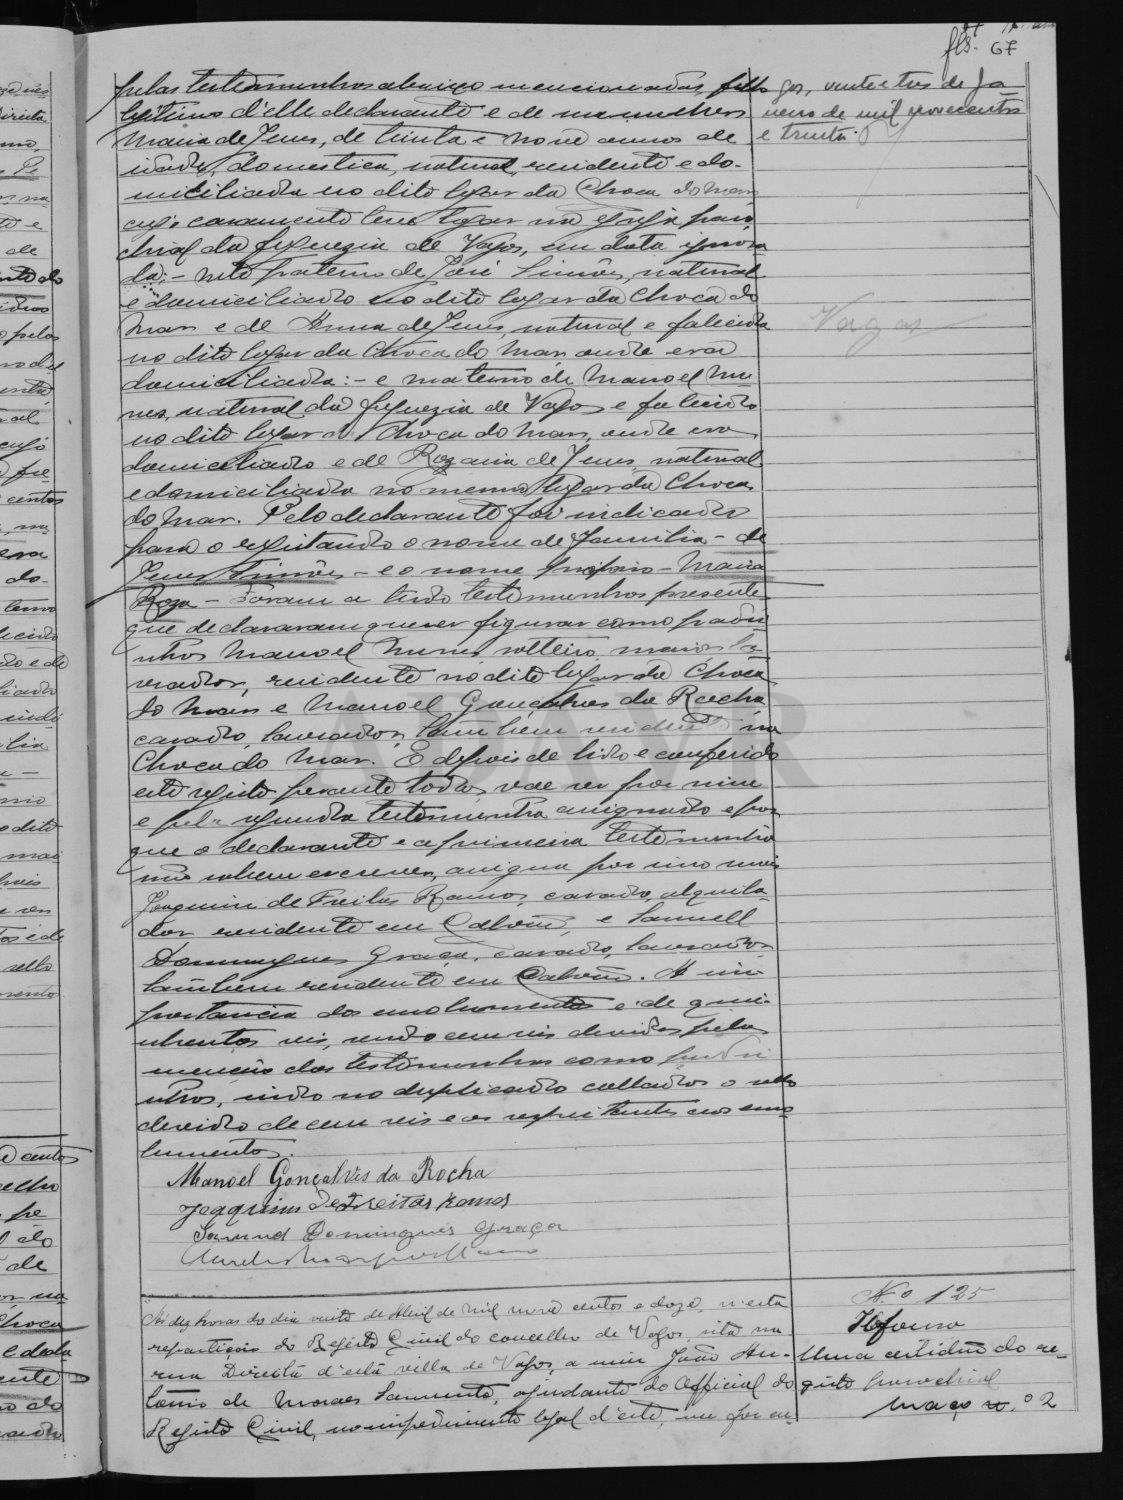 fls. 67
pelas testemunhas abaixo mencionadas, filho
legitimo d'elle declarante e de sua mulher
Maria de Jesus, de trinta e nove annos de
idade, domestica, natural, residente e do-
miciliada no dito logar da Choca do Mar
cujo casamento teve logar na egreja paro
chial da freguezia de Vagos, em data ignora
da; - neto paterno de José Simões, natural
e domiciliado no dito logar da Choca do
Mar e de Anna de Jesus, natural e falecida
no dito logar da Choca do Mar, onde era
domiciliada: - e materno de Manoel Nu-
nes, natural da freguezia de Vagos e falecido
no dito logar da Choca do Mar, onde era
domiciliado e de Rozaria de Jesus, natural
e domiciliada no mesmo logar da Choca
do Mar. Pelo declarante foi indicado
para o registando o nome de familia - de
Jesus Simões - e o nome proprio - Maria
Roza - Foram a tudo testemunhas presentes
que declararam querer figurar como padri
nhos Manoel Nunes, solteiro, maior, la
vrador, residente no dito logar da Choca
do Mar e Manoel Gonçalves da Rocha
casado, lavrador, tambem residente na
Choca do Mar. E depois de lido e conferido
este registo perante todos, vae ser por mim
e pela segunda testemunha assignado e por
que o declarante e a primeira testemunha
não sabem escrever, assigna por isso mais
Joaquim de Freitas Ramos, casado, alquila-
dor residente em Calvão, e Samuel
Domingues Graça, casado, lavrador,
tambem residente em Calvão. A im
portancia dos emolumentos é de qui-
nhentos reis, sendo cem reis devidos pela
menção das testemunhas como padri
nhos, indo no duplicado collados o sello
devido de cem reis e os respeitantes aos emo
lumentos.
Manoel Gonçalves da Rocha
Joaquim de Freitas Ramos
Samuel Domingues Graça
gos, vinte e tres de Ja-
neiro de mil novecentos
e trinta.
Vagos
Ás dez horas do dia vinte de Abril de mil nove centos e doze, n'esta
repartição do Registo Civil do concelho de Vagos, sita na
rua Direita d'esta villa de Vagos, a mim João An-
tonio de Moraes Sarmento, ajudante do Official do
Registo Civil, no impedimento legal d'este, me foi en
N.º 125
Uma certidão do re-
gisto parochial
Maço n.º 2